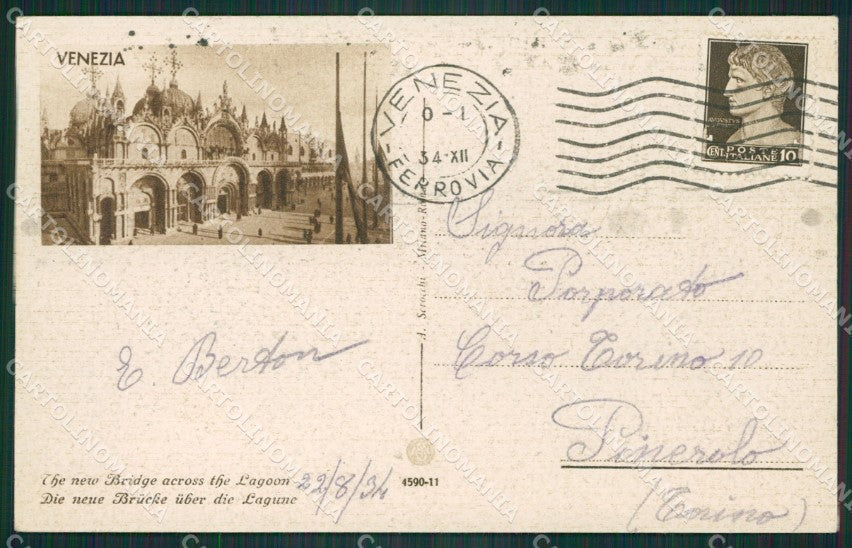 VENEZIA
VENEZIA
34·XII
FERROVIA
AVGVSTVS
POSTE
CENT. ITALIANE 10
Signora
Porporato
Corso Torino 10
Pinerolo
(Torino)
E. Berton
A. Scrocchi - Milano
The new Bridge across the Lagoon
Die neue Brücke über die Lagune
22/8/34
4590-11
CARTOLINOMANIA